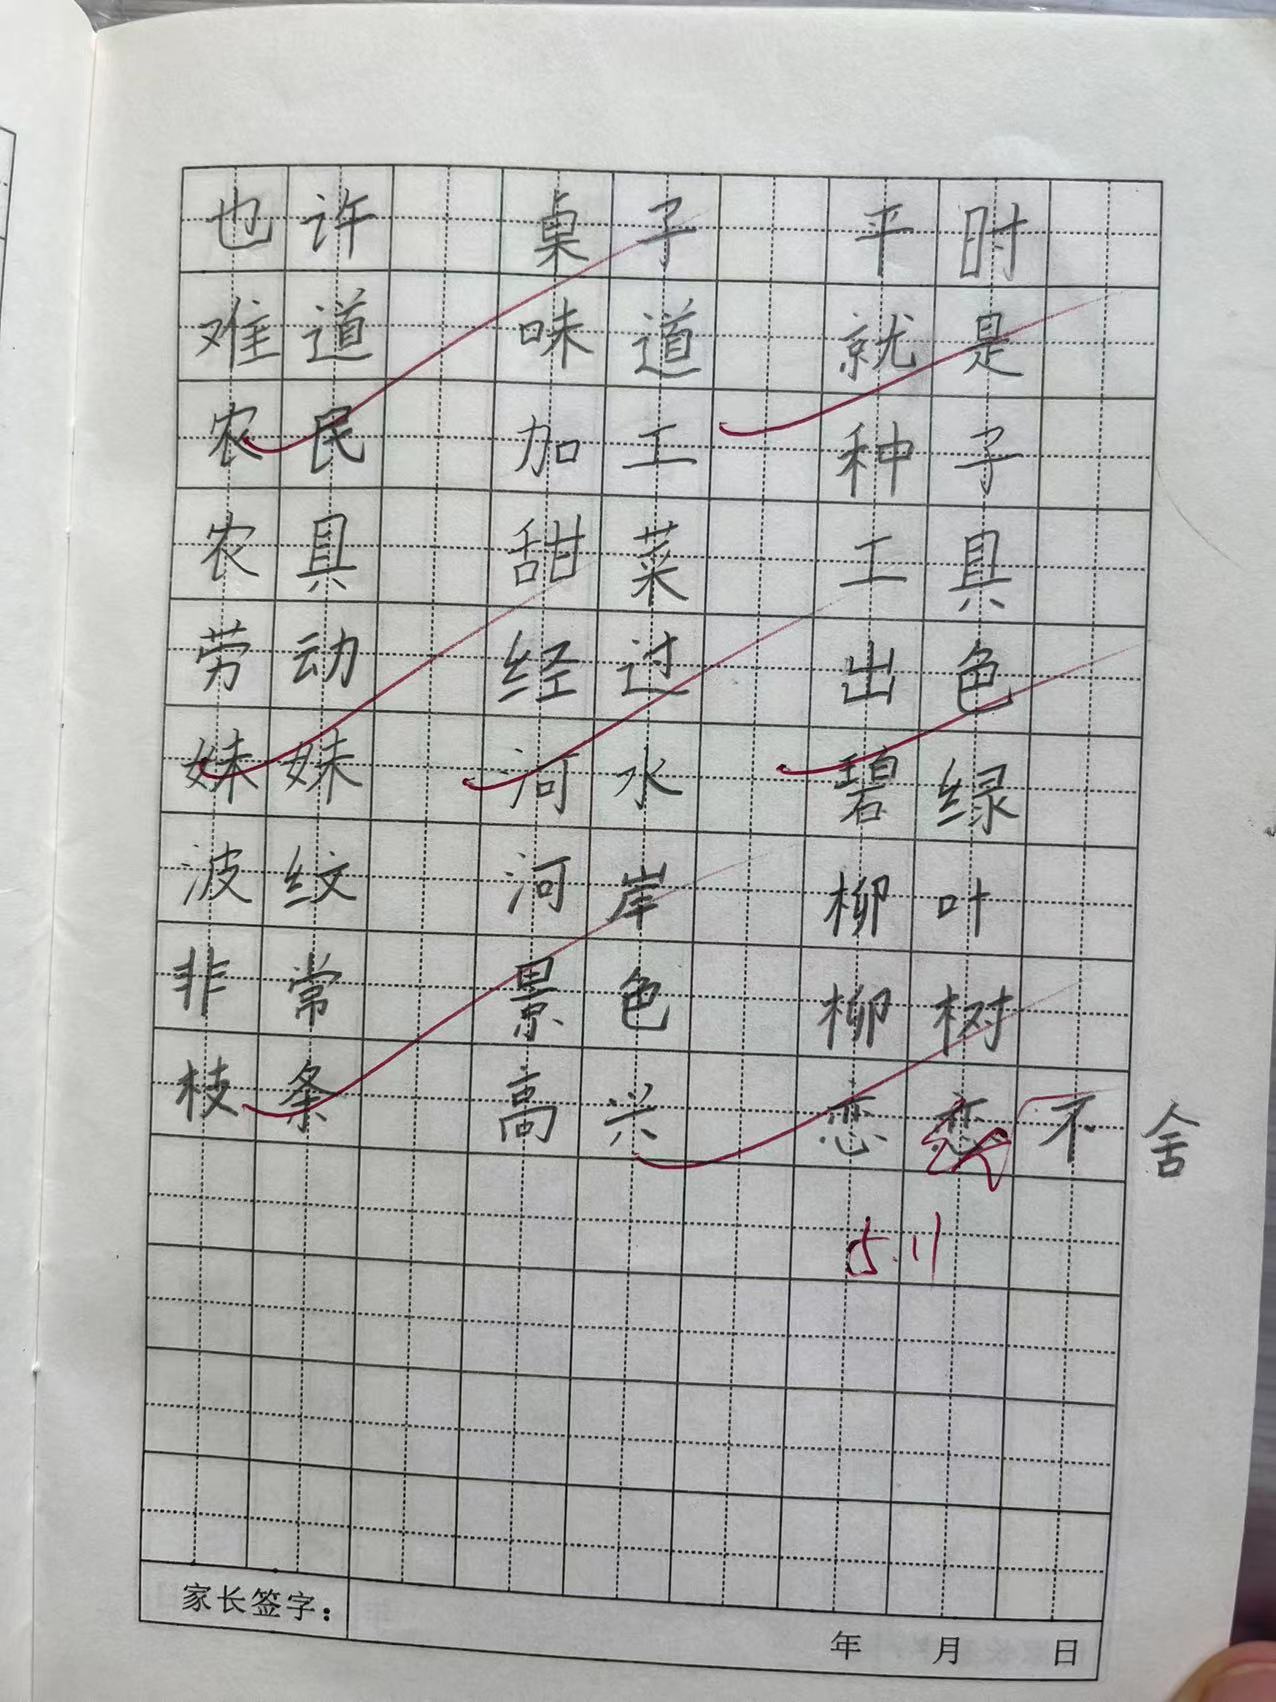 也许 桌子 平时
难道 味道 就是
农民 加工 种子
农具 甜菜 工具
劳动 经过 出色
妹妹 河水 碧绿
波纹 河岸 柳叶
非常 景色 柳树
枝条 高兴 恋恋不舍
5.11
家长签字：
年 月 日